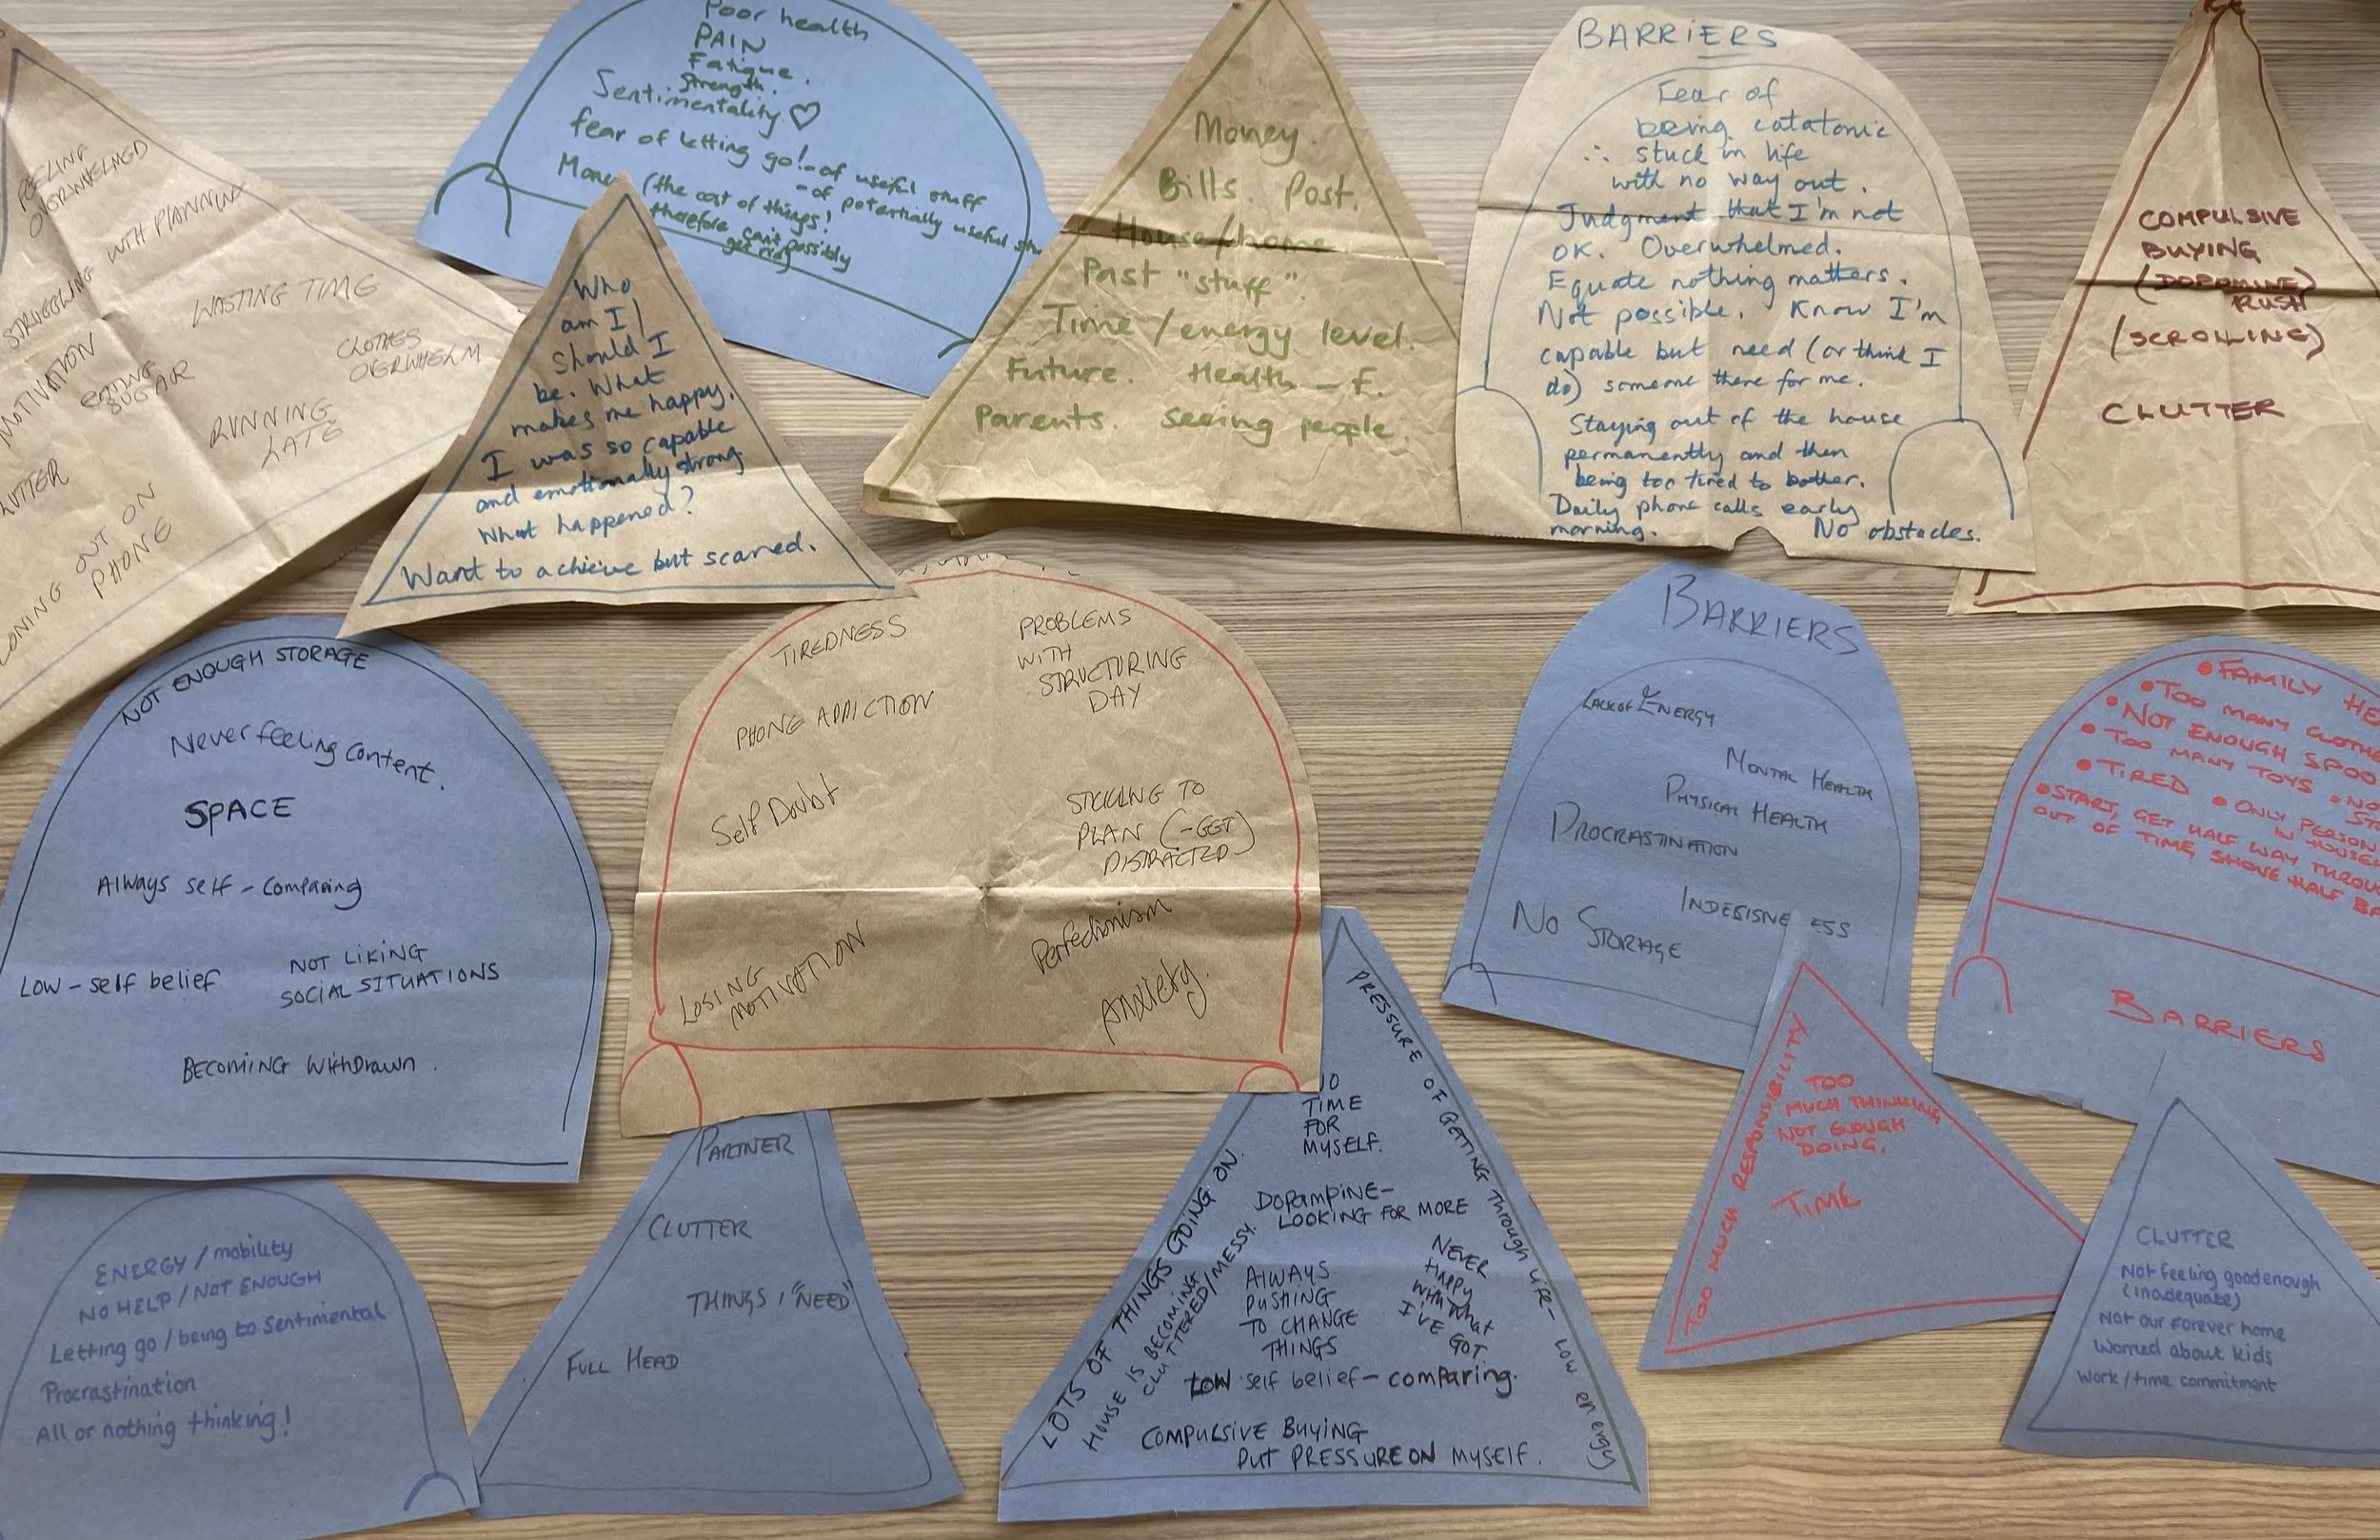 FEELING
OVERWHELMED
STRUGGLING WITH PLANNING
WASTING TIME
MOTIVATION
EATING
SUGAR
CLOTHES
OVERWHELM
RUNNING
LATE
OUT ON
PHONE
Poor health
PAIN
Fatigue.
Strength.
Sentimentality ♡
fear of letting go! - of useful stuff
- of potentially useful
Money (the cost of things!
therefore can't possibly
get rid)
Who
am I /
Should I
be. What
makes me happy.
I was so capable
and emotionally strong
What happened?
Want to achieve but scared.
Money.
Bills. Post.
House/home.
Past "stuff".
Time / energy level.
Future. Health – F.
Parents. Seeing people.
BARRIERS
Fear of
being catatonic
∴ stuck in life
with no way out.
Judgment that I'm not
OK. Overwhelmed.
Equate nothing matters.
Not possible. Know I'm
capable but need (or think I
do) someone there for me.
Staying out of the house
permanently and then
being too tired to bother.
Daily phone calls early
morning. No obstacles.
COMPULSIVE
BUYING
(DOPAMINE)
RUSH
(SCROLLING)
CLUTTER
NOT ENOUGH STORAGE
Never feeling content.
SPACE
Always self-comparing
LOW-self belief
NOT LIKING
SOCIAL SITUATIONS
BECOMING withdrawn.
TIREDNESS
PROBLEMS
WITH
STRUCTURING
DAY
PHONE ADDICTION
Self Doubt
STICKING TO
PLAN (-GET
DISTRACTED)
LOSING
MOTIVATION
Perfectionism
Anxiety.
BARRIERS
LACK OF ENERGY
MENTAL HEALTH
PHYSICAL HEALTH
PROCRASTINATION
INDESISNE ESS
NO STORAGE
• FAMILY
• TOO MANY
• NOT ENOUGH
• TOO MANY TOYS •
• TIRED • ONLY PERSON
IN
• START, GET HALF WAY
OUT OF TIME, SHOVE HALF
BARRIERS
ENERGY / mobility
NO HELP / NOT ENOUGH
Letting go / being to sentimental
Procrastination
All or nothing thinking!
PARTNER
CLUTTER
THINGS I "NEED"
FULL HEAD
PRESSURE OF GETTING through life - low energy
TIME
FOR
MYSELF.
LOTS OF THINGS GOING ON.
HOUSE IS BECOMING
CLUTTERED/MESSY.
DOPAMPINE-
LOOKING FOR MORE
ALWAYS
PUSHING
TO CHANGE
THINGS
NEVER
HAPPY
With what
I'VE GOT
LOW self belief - comparing.
COMPULSIVE BUYING
PUT PRESSURE ON MYSELF.
TOO MUCH RESPONSIBILITY
TOO
MUCH THINKING
NOT ENOUGH
DOING.
TIME
CLUTTER
Not feeling good enough
(inadequate)
Not our forever home
Worried about kids
Work/time commitment